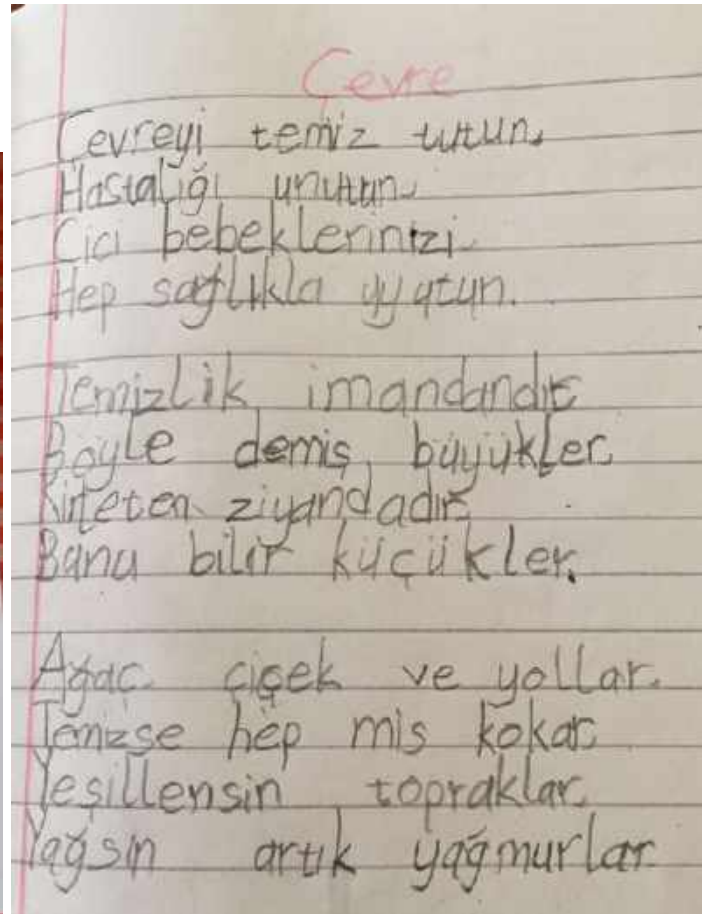 Çevre
Çevreyi temiz tutun.
Hastalığı unutun.
Cici bebeklerinizi
Hep sağlıkla uyutun.
Temizlik imandandır
Böyle demiş büyükler.
Kirleten ziyandadır.
Bunu bilir küçükler.
Ağaç çiçek ve yollar.
Temizse hep mis kokar.
Yeşillensin topraklar.
Yağsın artık yağmurlar